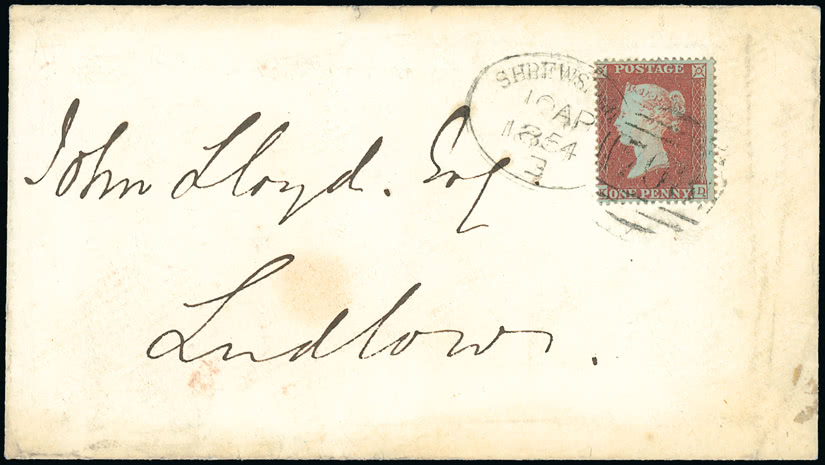 John Lloyd. Esq
Ludlow.
SHREWS
10 AP
1854
E
POSTAGE
ONE PENNY
D